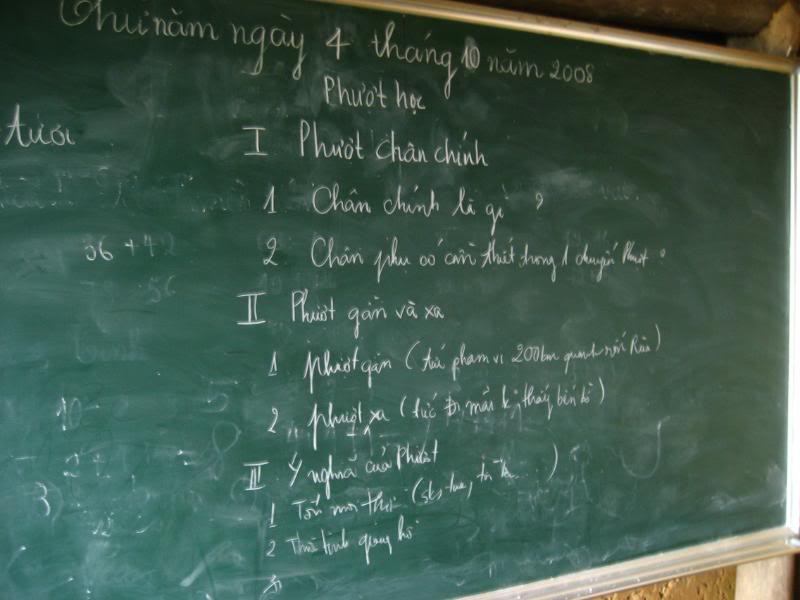 Thứ năm ngày 4 tháng 10 năm 2008
Phượt học
tươi
I Phượt chân chính
1 Chân chính là gì ?
36 + 42
2 Chân phụ có cần thiết trong 1 chuyến Phượt ?
II Phượt gần và xa
1 phượt gần (tức phạm vi 200km quanh núi Rùa)
10
2 phượt xa (tức đi mãi k thấy bến bờ)
III Ý nghĩa của Phượt
3
1 Tốn mọi thứ
2 Thời tình giang hồ